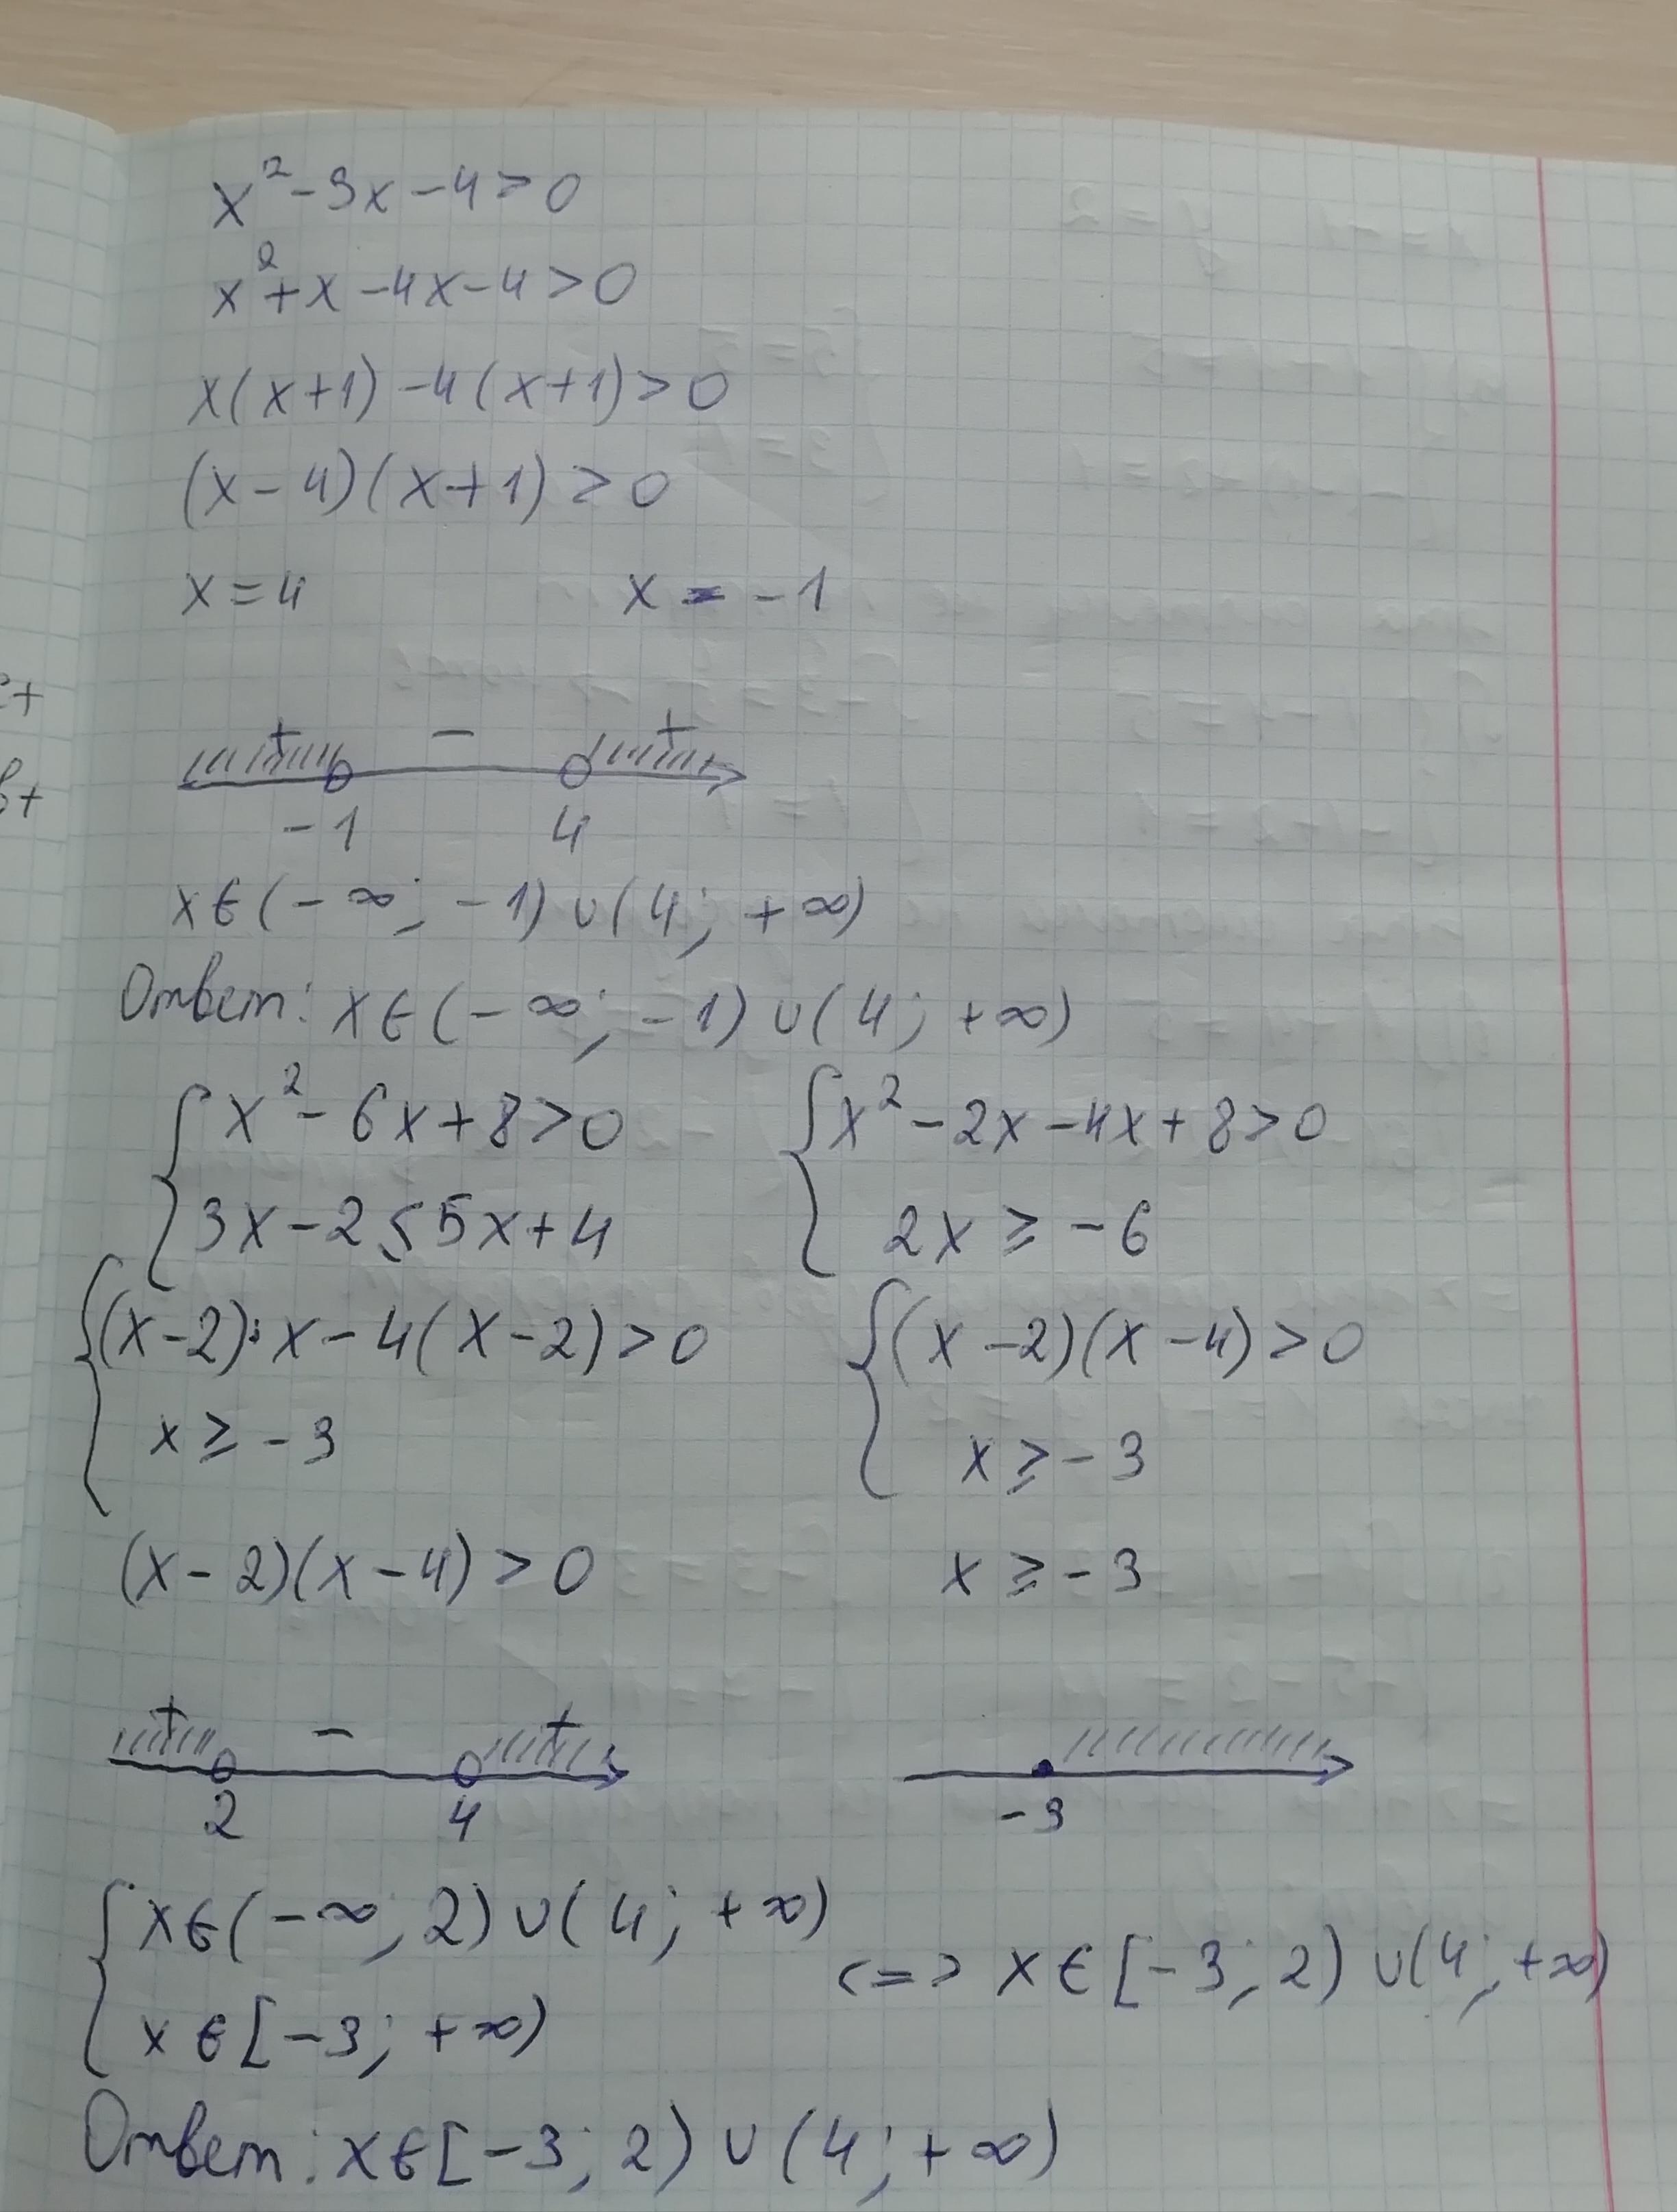 x² - 3x - 4 > 0
x² + x - 4x - 4 > 0
x(x+1) - 4(x+1) > 0
(x - 4)(x+1) > 0
x = 4 x = -1
+ - +
-1 4
x ∈ (-∞; -1) ∪ (4; +∞)
Ответ: x ∈ (-∞; -1) ∪ (4; +∞)
{ x² - 6x + 8 > 0 { x² - 2x - 4x + 8 > 0
3x - 2 ≤ 5x + 4 2x ≥ -6
{ (x-2)·x - 4(x-2) > 0 { (x-2)(x-4) > 0
x ≥ -3 x ≥ -3
(x-2)(x-4) > 0 x ≥ -3
+ - +
2 4 -3
{ x ∈ (-∞; 2) ∪ (4; +∞) <=> x ∈ [-3; 2) ∪ (4; +∞)
x ∈ [-3; +∞)
Ответ: x ∈ [-3; 2) ∪ (4; +∞)